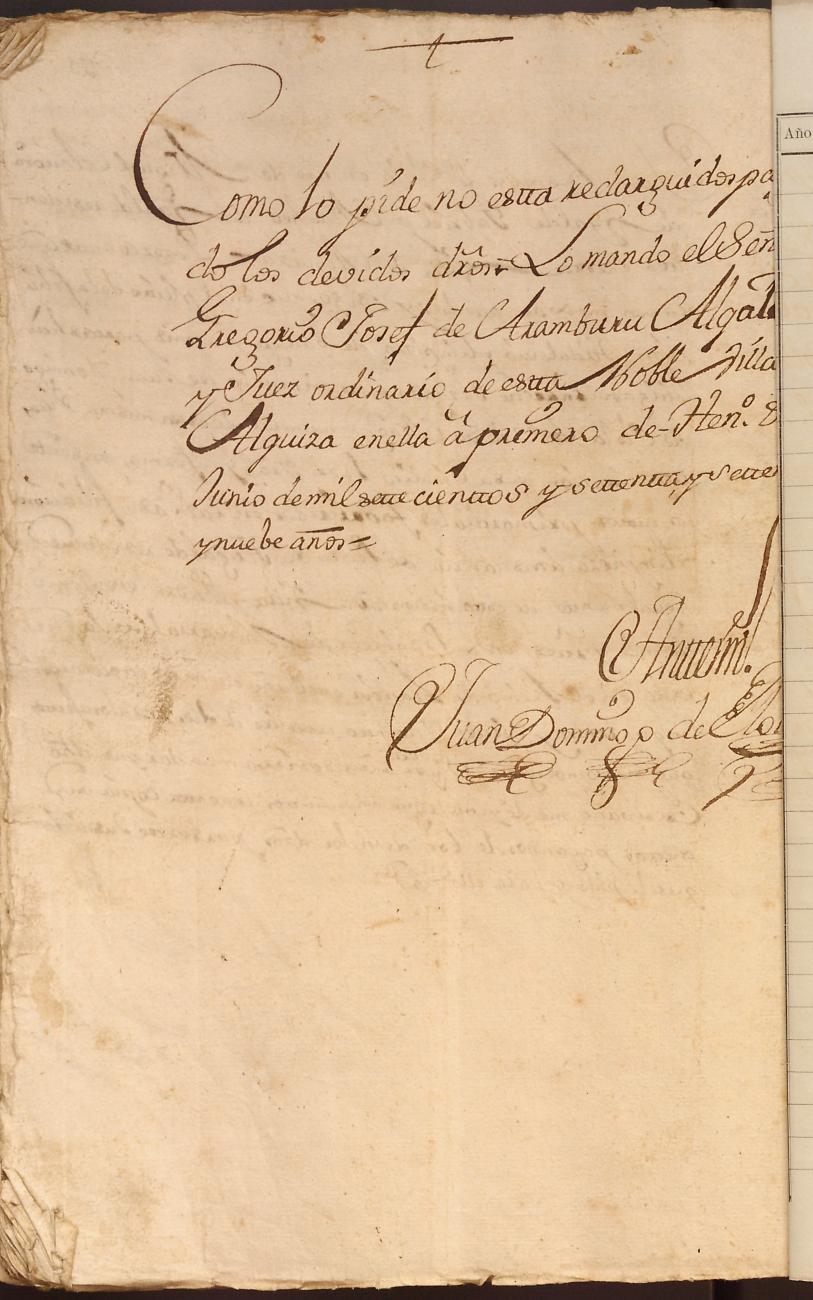 Año
Como lo pide no estta redarguidos pa
do los devidos dros= Lo mando el Señ
Gregorio Josef de Aramburu Algal
y Juez ordinario de estta Noble Villa
Alquiza enella â primero de
Junio demil sette cienttos y settentta y sette
ynuebe años=
Anttemi
Juan Domingo de